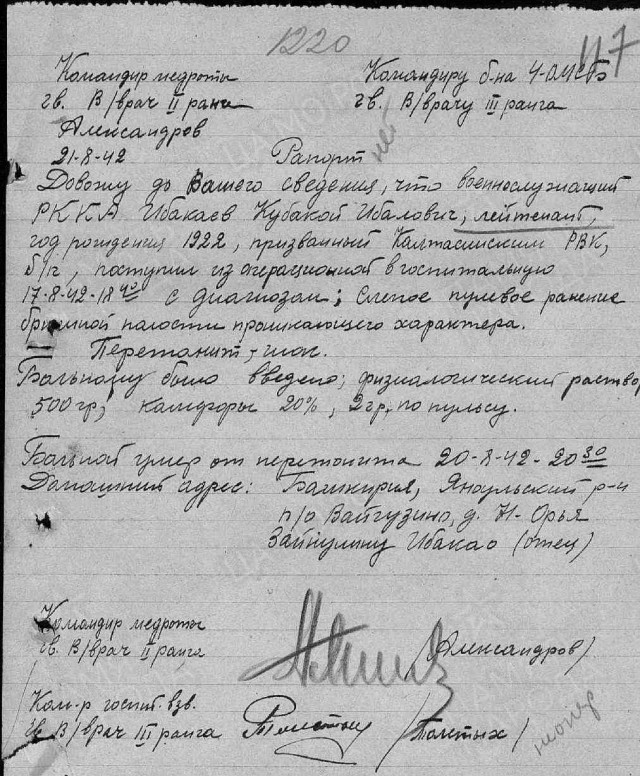 1220
117
Командир медроты
гв. В/врач II ранга
Александров
21-8-42
Командиру б-на 4-ОМСБ
гв. В/врачу III ранга
Рапорт
Довожу до Вашего сведения, что военнослужащий
РККА Ибакаев Кубакой Ибалович, лейтенант,
год рождения 1922, призванный Калтасинским РВК,
б/п, поступил из операционной в госпитальную
17-8-42-18 40 с диагнозом; Слепое пулевое ранение
брюшной полости проникающего характера.
Перетонит, шок.
Больному было введено; физиалогический раствор
500 гр, камфоры 20%, 2 гр, по пульсу.
Больной умер от перетонита 20-8-42-20 30
Домашний адрес: Башкирия, Янаульский р-н
п/о Вайгузино, д. Н-Орья
Зайнулину Ибакао (отец)
Командир медроты
гв. В/врач II ранга
/Александров/
Ком-р госпит. взв.
гв В/врач III ранга
/Толстых/